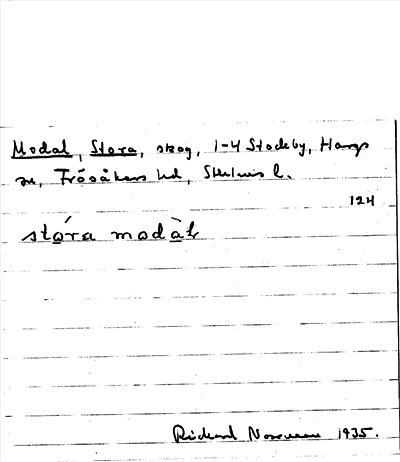 Modal, Stora, skog, 1-4 Stockby, Hargs
sn, Frösåkers hd, Sthlms l.
124
stóra modàl
Rickard 1935.